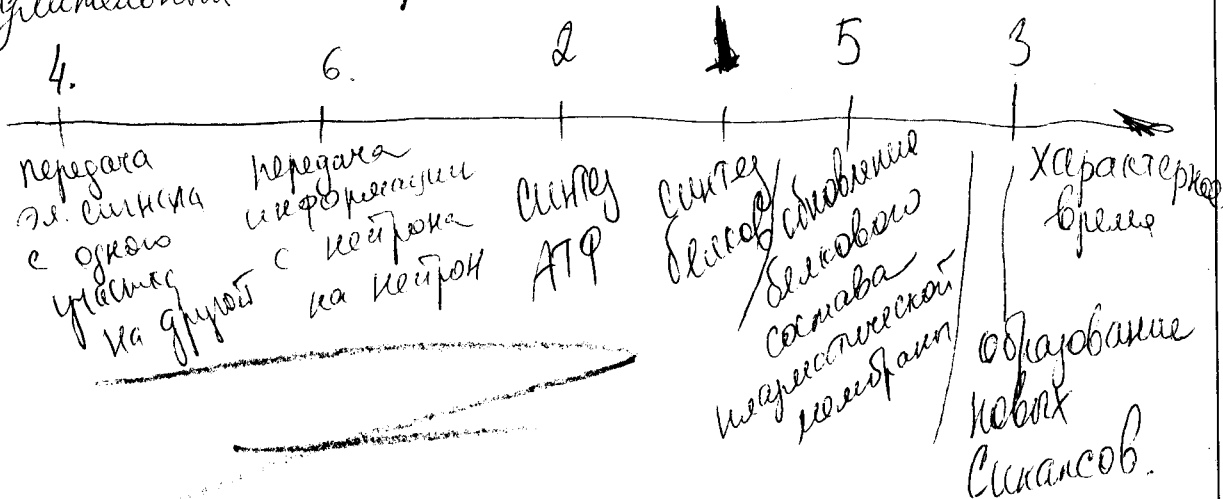 4.
6.
2
1
5
3
передача
эл. сигнала
с одного
участка
на другой
передача
информации
с нейрона
на нейрон
синтез
АТФ
синтез
белков
обновление
белкового
состава
плазматической
мембраны
образование
новых
синапсов.
характерное
время